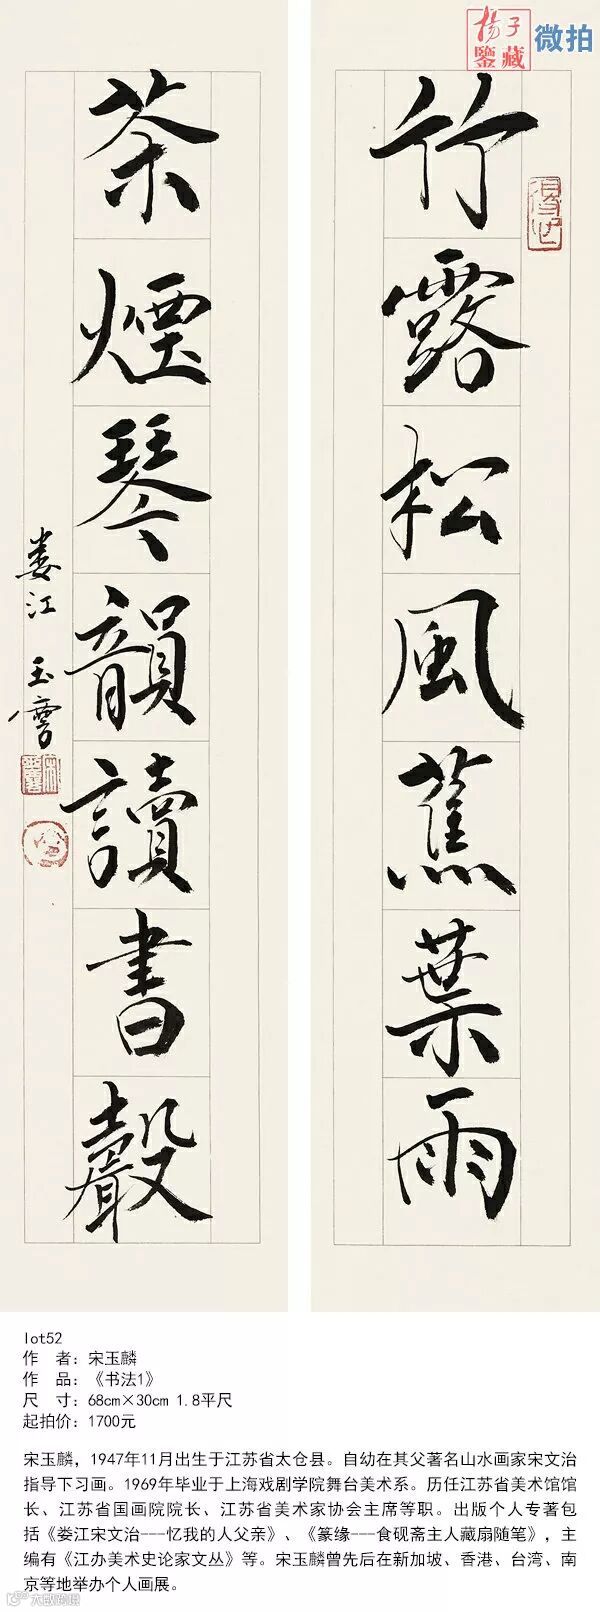 揚子
鑒藏
微拍
竹露松風蕉葉雨
茶煙琴韻讀書聲
娄江 玉麐
lot52
作 者：宋玉麟
作 品：《书法1》
尺 寸：68cm×30cm 1.8平尺
起拍价：1700元
宋玉麟，1947年11月出生于江苏省太仓县。自幼在其父著名山水画家宋文治
指导下习画。1969年毕业于上海戏剧学院舞台美术系。历任江苏省美术馆馆
长、江苏省国画院院长、江苏省美术家协会主席等职。出版个人专著包
括《娄江宋文治---忆我的人父亲》、《篆缘---食砚斋主人藏扇随笔》，主
编有《江办美术史论家文丛》等。宋玉麟曾先后在新加坡、香港、台湾、南
京等地举办个人画展。